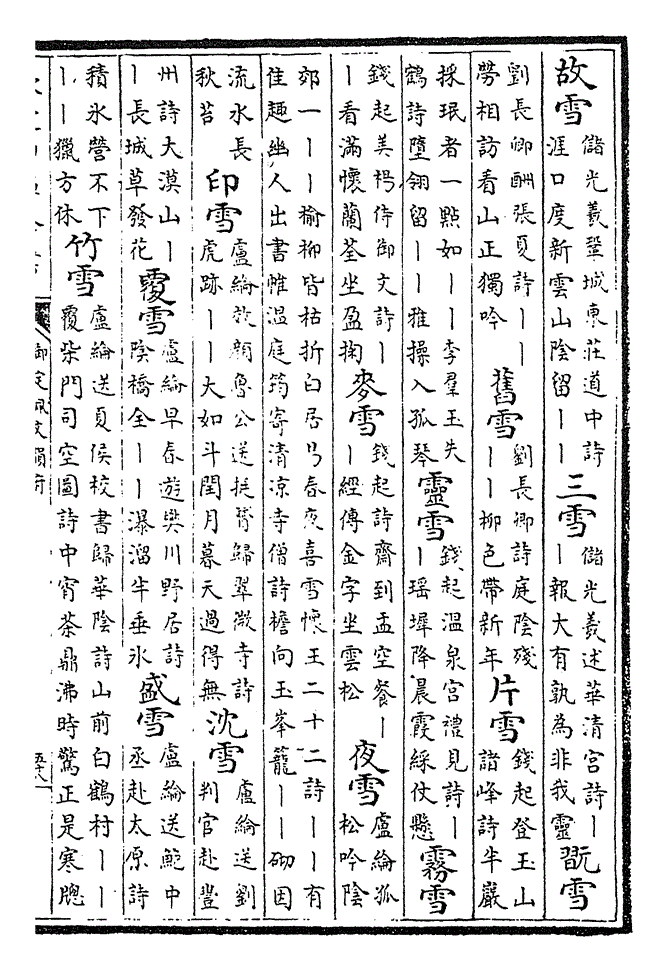 故雪 儲光羲鞏城東莊道中詩涯口度新雲山陰留丨丨 三雪 儲光羲述華清宮詩丨丨報大有孰為非我靈 翫雪
劉長卿酬張夏詩丨丨勞相訪看山正獨吟 舊雪 劉長卿詩庭陰殘丨丨柳色帶新年 片雪 錢起登玉山諸峰詩半巖
採珉者一點如丨丨李羣玉失鶴詩墮翎留丨丨雅操入孤琴 靈雪 錢起溫泉宮禮見詩丨丨瑶墀降晨霞綵仗懸 霧雪
錢起美楊侍御文詩丨丨看滿懷蘭荃坐盈掬 麥雪 錢起詩齋到盂空餐丨丨經傳金字坐雲松 夜雪 盧綸孤松吟陰
郊一丨丨榆柳皆枯折白居易春夜喜雪懷王二十二詩丨丨有佳趣幽人出書帷温庭筠寄清凉寺僧詩檐向玉峯籠丨丨砌因
流水長秋苔 印雪 盧綸敩顔魯公送挺贇歸翠微寺詩虎跡丨丨大如斗閏月暮天過得無 沈雪 盧綸送劉判官赴豐
州詩大漠山丨丨長城草發花 覆雪 盧綸早春遊樊川野居詩陰橋全丨丨瀑溜半垂氷 盛雪 盧綸送鮑中丞赴太原詩
積氷營不下丨丨獵方休 竹雪 盧綸送夏侯校書歸華陰詩山前白鶴村丨丨覆柴門司空圖詩中宵茶鼎沸時驚正是寒牕
御定佩文韻府